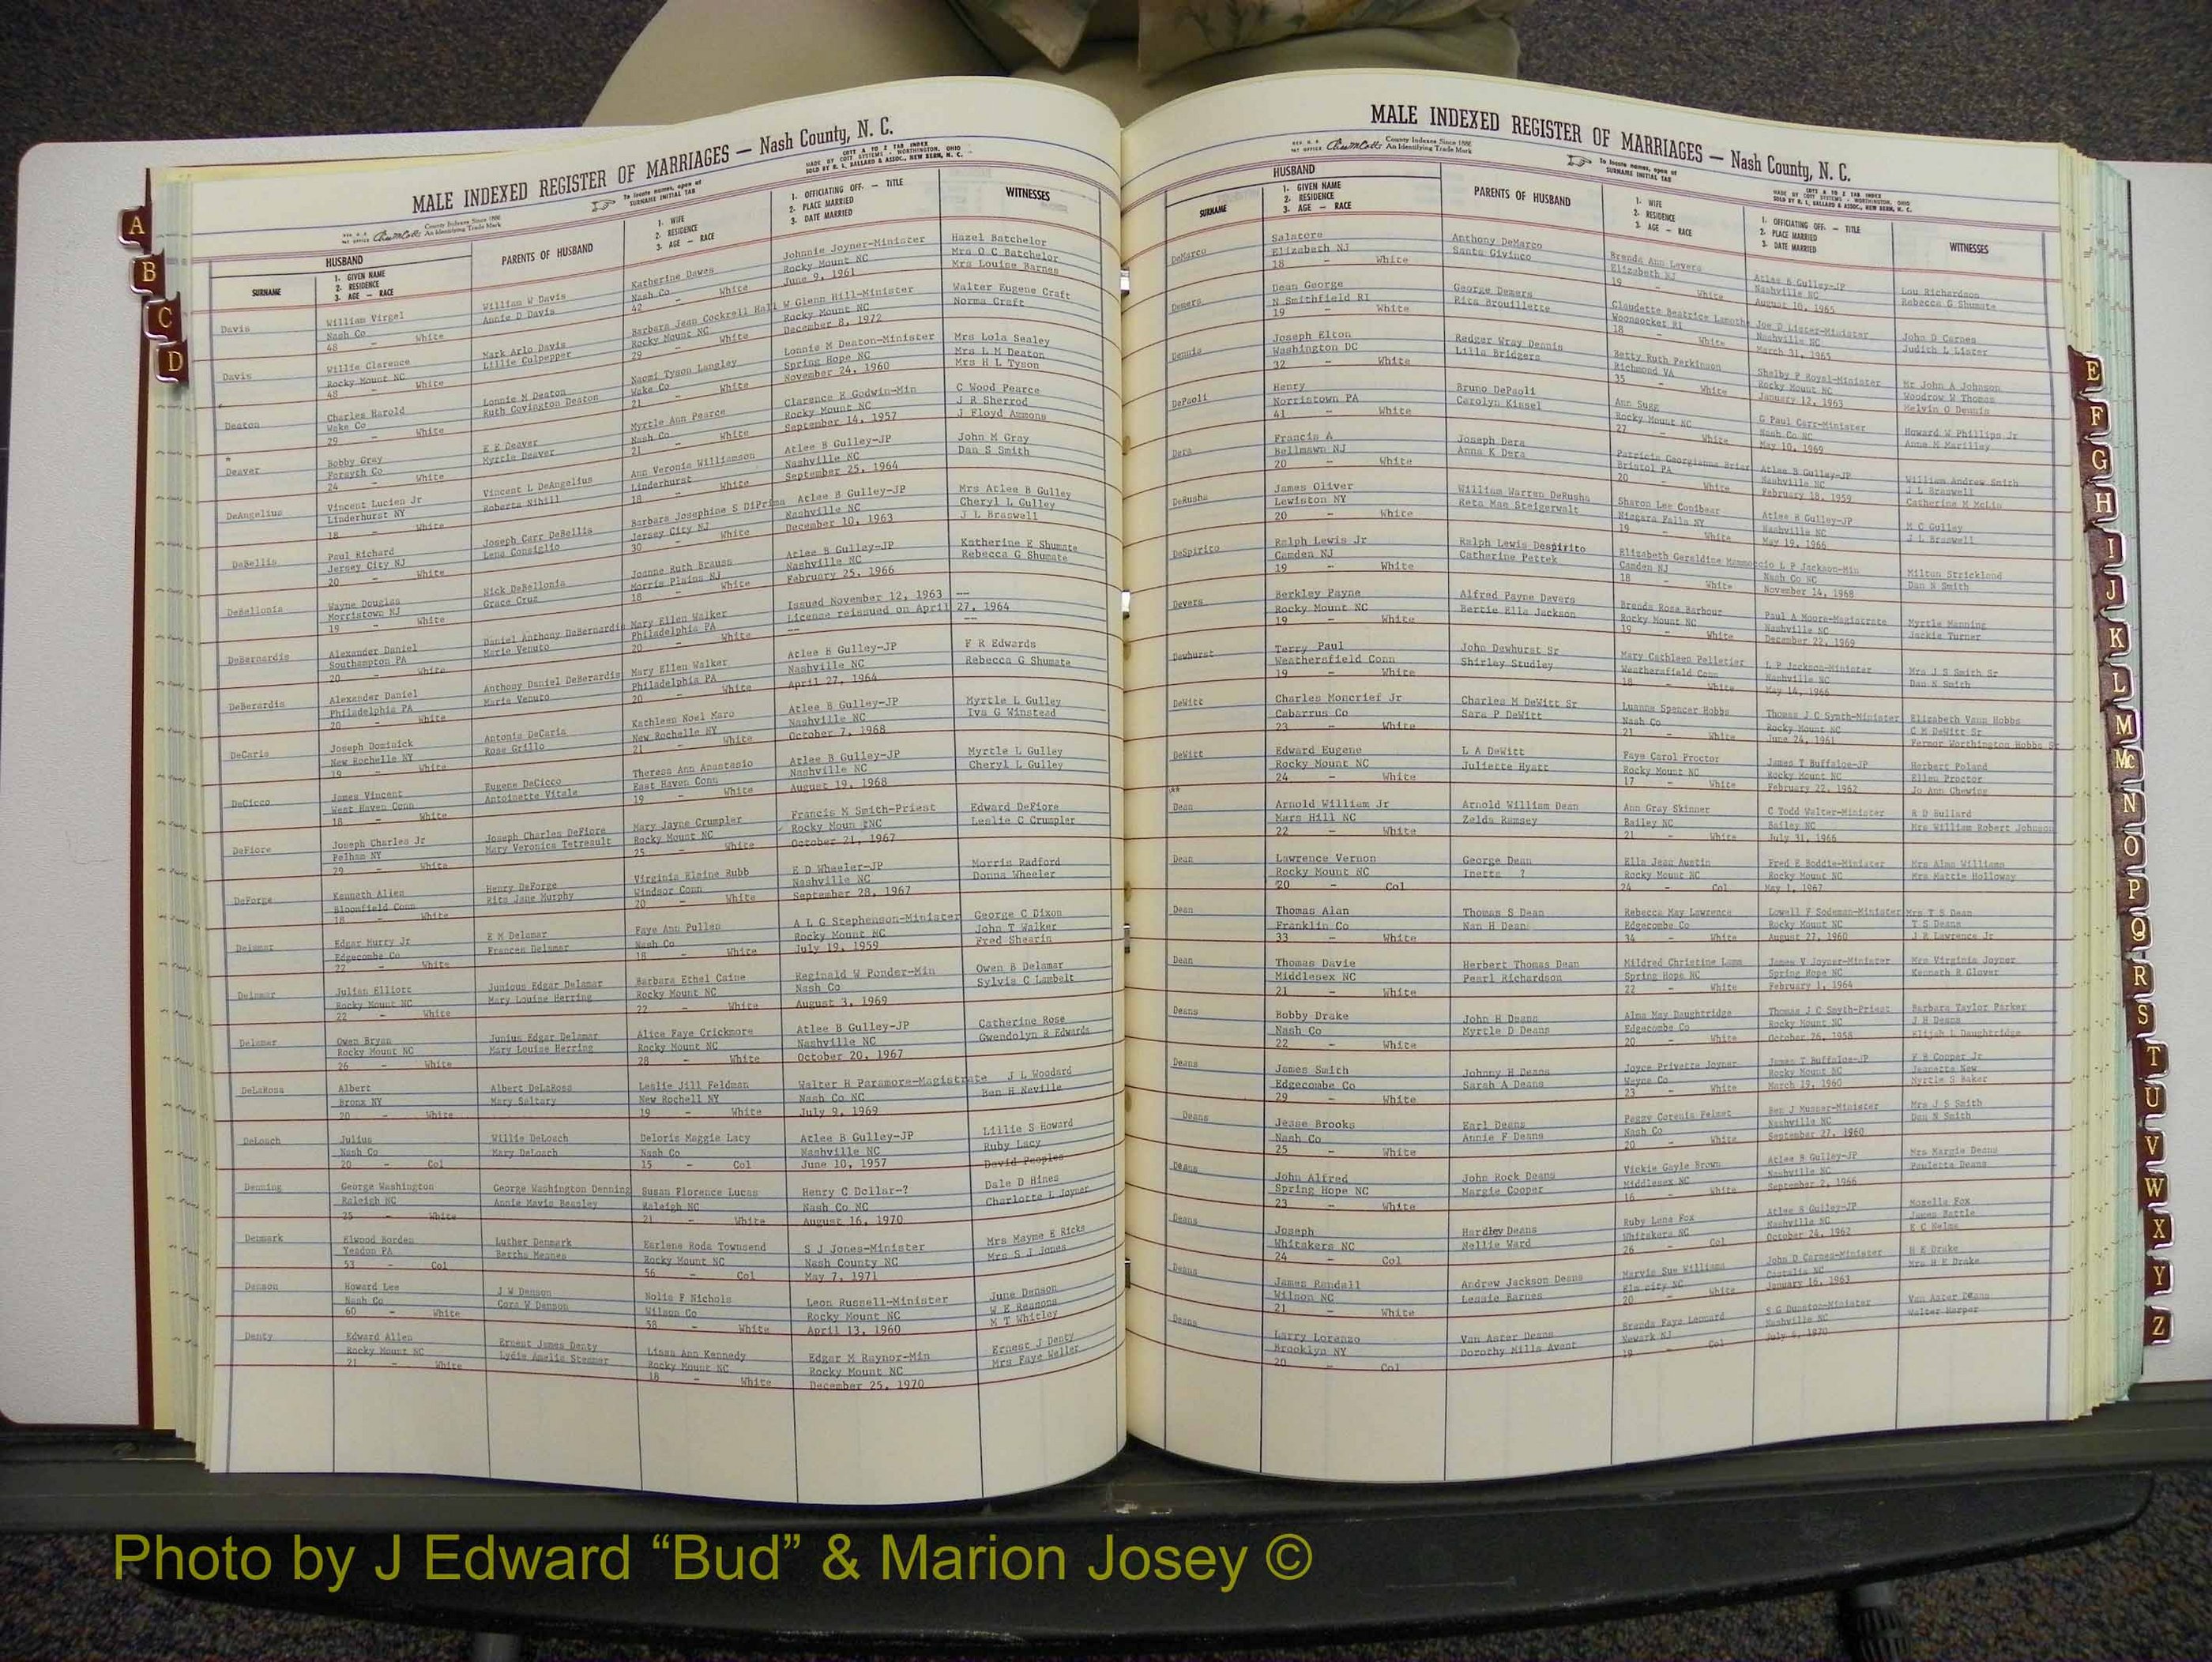 MALE INDEXED REGISTER OF MARRIAGES — Nash County, N. C.
REG. U. S. PAT OFFICE County Indexes Since 1888 An Identifying Trade Mark
To locate names, open at SURNAME INITIAL TAB
COTT A TO Z TAB INDEX
MADE BY COTT SYSTEMS - WORTHINGTON, OHIO
SOLD BY R. L. BALLARD & ASSOC., NEW BERN, N. C.
HUSBAND
SURNAME
1. GIVEN NAME
2. RESIDENCE
3. AGE — RACE
PARENTS OF HUSBAND
1. WIFE
2. RESIDENCE
3. AGE — RACE
1. OFFICIATING OFF. — TITLE
2. PLACE MARRIED
3. DATE MARRIED
WITNESSES
Davis William Virgel William W Davis Katherine Dawes Johnnie Joyner-Minister Hazel Batchelor
Nash Co Annie D Davis Nash Co Rocky Mount NC Mrs O C Batchelor
48 - White 42 - White June 9, 1961 Mrs Louise Barnes
Davis Willie Clarence Mark Arlo Davis Barbara Jean Cockrell Hall W Glenn Hill-Minister Walter Eugene Craft
Rocky Mount NC Lillie Culpepper Rocky Mount NC Rocky Mount NC Norma Craft
48 - White 29 - White December 8, 1972
Deaton Charles Harold Lonnie M Deaton Naomi Tyson Langley Lonnie M Deaton-Minister Mrs Lola Sealey
Wake Co Ruth Covington Deaton Wake Co Spring Hope NC Mrs L M Deaton
29 - White 21 - White November 24, 1960 Mrs H L Tyson
*
Deaver Bobby Gray E E Deaver Myrtle Ann Pearce Clarence E Godwin-Min C Wood Pearce
Forsyth Co Myrtle Deaver Nash Co Rocky Mount NC J R Sherrod
24 - White 21 - White September 14, 1957 J Floyd Ammons
DeAngelius Vincent Lucien Jr Vincent L DeAngelius Ann Veronia Williamson Atlee B Gulley-JP John M Gray
Linderhurst NY Roberta Nihill Linderhurst Nashville NC Dan S Smith
18 - White 18 - White September 25, 1964
DeBellis Paul Richard Joseph Carr DeBellis Barbara Josephine S DiPrima Atlee B Gulley-JP Mrs Atlee B Gulley
Jersey City NJ Lena Consiglio Jersey City NJ Nashville NC Cheryl L Gulley
20 - White 30 - White December 10, 1963 J L Braswell
DeBellonis Wayne Douglas Nick DeBellonis Joanne Ruth Brauss Atlee B Gulley-JP Katherine E Shumate
Morristown NJ Grace Cruz Morris Plains NJ Nashville NC Rebecca G Shumate
19 - White 18 - White February 25, 1966
DeBernardis Alexander Daniel Daniel Anthony DeBernardis Mary Ellen Walker Issued November 12, 1963 --
Southampton PA Marie Venuto Philadelphia PA License reissued on April 27, 1964
20 - White 20 - White -- --
DeBerardis Alexander Daniel Anthony Daniel DeBerardis Mary Ellen Walker Atlee B Gulley-JP F R Edwards
Philadelphia PA Marie Venuto Philadelphia PA Nashville NC Rebecca G Shumate
20 - White 20 - White April 27, 1964
DeCaris Joseph Dominick Antonis DeCaris Kathleen Noel Maro Atlee B Gulley-JP Myrtle L Gulley
New Rochelle NY Rose Grillo New Rochelle NY Nashville NC Iva G Winstead
19 - White 21 - White October 7, 1968
DeCicco James Vincent Eugene DeCicco Theresa Ann Anastasio Atlee B Gulley-JP Myrtle L Gulley
West Haven Conn Antoinette Vitale East Haven Conn Nashville NC Cheryl L Gulley
18 - White 19 - White August 19, 1968
DeFiore Joseph Charles Jr Joseph Charles DeFiore Mary Jayne Crumpler Francis M Smith-Priest Edward DeFiore
Pelham NY Mary Veronica Tetreault Rocky Mount NC Rocky Moun NC Leslie C Crumpler
29 - White 25 - White October 21, 1967
DeForge Kenneth Allen Henry DeForge Virginia Elaine Rubb E D Wheeler-JP Morris Radford
Bloomfield Conn Rita Jane Murphy Windsor Conn Nashville NC Donna Wheeler
18 - White 20 - White September 28, 1967
Delamar Edgar Murry Jr E M Delamar Faye Ann Pullen A L G Stephenson-Minister George C Dixon
Edgecombe Co Frances Delamar Nash Co Rocky Mount NC John T Walker
22 - White 18 - White July 19, 1959 Fred Shearin
Delamar Julian Elliott Junious Edgar Delamar Barbara Ethel Caine Reginald W Ponder-Min Owen B Delamar
Rocky Mount NC Mary Louise Herring Rocky Mount NC Nash Co Sylvia C Lambelt
22 - White 22 - White August 3, 1969
Delamar Owen Bryan Junius Edgar Delamar Alice Faye Crickmore Atlee B Gulley-JP Catherine Rose
Rocky Mount NC Mary Louise Herring Rocky Mount NC Nashville NC Gwendolyn R Edwards
26 - White 28 - White October 20, 1967
DeLaRosa Albert Albert DeLaRosa Leslie Jill Feldman Walter H Paramore-Magistrate J L Woodard
Bronx NY Mary Soltary New Rochell NY Nash Co NC Ben H Neville
20 - White 19 - White July 9, 1969
DeLoach Julius Willie DeLoach Deloris Maggie Lacy Atlee B Gulley-JP Lillie S Howard
Nash Co Mary DeLoach Nash Co Nashville NC Ruby Lacy
20 - Col 15 - Col June 10, 1957 David Peoples
Denning George Washington George Washington Denning Susan Florence Lucas Henry C Dollar-? Dale D Hines
Raleigh NC Annie Mavis Beasley Raleigh NC Nash Co NC Charlotte L Joyner
25 - White 21 - White August 16, 1970
Denmark Elwood Borden Luther Denmark Earlene Roda Townsend S J Jones-Minister Mrs Mayme E Ricks
Yeadon PA Bertha Meanes Rocky Mount NC Nash County NC Mrs S J Jones
53 - Col 56 - Col May 7, 1971
Denson Howard Lee J W Denson Nolie F Nichols Leon Russell-Minister June Denson
Nash Co Cora W Denson Wilson Co Rocky Mount NC W E Reasons
60 - White 58 - White April 13, 1960 M T Whitley
Denty Edward Allen Ernest James Denty Linan Ann Kennedy Edgar M Raynor-Min Ernest J Denty
Rocky Mount NC Lydie Amelia Stemmer Rocky Mount NC Rocky Mount NC Mrs Faye Weller
21 - White 18 - White December 25, 1970
MALE INDEXED REGISTER OF MARRIAGES — Nash County, N. C.
REG. U. S. PAT OFFICE County Indexes Since 1888 An Identifying Trade Mark
To locate names, open at SURNAME INITIAL TAB
COTT A TO Z TAB INDEX
MADE BY COTT SYSTEMS - WORTHINGTON, OHIO
SOLD BY R. L. BALLARD & ASSOC., NEW BERN, N. C.
HUSBAND
SURNAME
1. GIVEN NAME
2. RESIDENCE
3. AGE — RACE
PARENTS OF HUSBAND
1. WIFE
2. RESIDENCE
3. AGE — RACE
1. OFFICIATING OFF. — TITLE
2. PLACE MARRIED
3. DATE MARRIED
WITNESSES
DeMarco Salatore Anthony DeMarco Brenda Ann Levers Atlee B Gulley-JP Lou Richardson
Elizabeth NJ Santa Givinco Elizabeth NJ Nashville NC Rebecca G Shumate
18 - White 19 - White August 10, 1965
Demers Dean George George Demers Claudette Beatrice Lamoth Joe D Lister-Minister John D Carnes
N Smithfield RI Rita Brouillette Woonsocket RI Nashville NC Judith L Lister
19 - White 18 - White March 31, 1965
Dennis Joseph Elton Redger Wray Dennis Betty Ruth Perkinson Shelby P Royal-Minister Mr John A Johnson
Washington DC Lilla Bridgers Richmond VA Rocky Mount NC Woodrow W Thomas
32 - White 35 - White January 12, 1963 Melvin O Dennis
DePaoli Henry Bruno DePaoli Ann Sugg G Paul Carr-Minister Howard W Phillips Jr
Norristown PA Carolyn Kissel Rocky Mount NC Nash Co NC Anne M Marilley
41 - White 27 - White May 10, 1969
Dera Francis A Joseph Dera Patricia Georgianna Brier Atlee B Gulley-JP William Andrew Smith
Bellmawn NJ Anna K Dera Bristol PA Nashville NC J L Braswell
20 - White 20 - White February 18, 1959 Catherine M McLin
DeRusha James Oliver William Warren DeRusha Sharon Lee Conibear Atlee B Gulley-JP M C Gulley
Lewiston NY Reta Mae Steigerwalt Niagara Falls NY Nashville NC J L Braswell
20 - White 19 - White May 19, 1966
DeSpirito Ralph Lewis Jr Ralph Lewis Despirito Elizabeth Geraldine Mammoccio L P Jackson-Min Milton Strickland
Camden NJ Catherine Pettek Camden NJ Nash Co NC Dan N Smith
19 - White 18 - White November 14, 1968
Devers Berkley Payne Alfred Payne Devers Brenda Rose Barbour Paul A Moore-Magistrate Myrtle Manning
Rocky Mount NC Bertie Ella Jackson Rocky Mount NC Nashville NC Jackie Turner
19 - White 19 - White December 22, 1969
Dewhurst Terry Paul John Dewhurst Sr Mary Cathleen Pelletier L P Jackson-Minister Mrs J S Smith Sr
Weathersfield Conn Shirley Studley Weathersfield Conn Nashville NC Dan N Smith
19 - White 18 - White May 14, 1966
DeWitt Charles Moncrief Jr Charles M DeWitt Sr Luanne Spencer Hobbs Thomas J C Smyth-Minister Elizabeth Vaun Hobbs
Cabarrus Co Sara P DeWitt Nash Co Rocky Mount NC C M DeWitt Sr
23 - White 21 - White June 24, 1961 Fermor Worthington Hobbs Sr
DeWitt Edward Eugene L A DeWitt Faye Carol Proctor James T Buffaloe-JP Herbert Poland
Rocky Mount NC Juliette Hyatt Rocky Mount NC Rocky Mount NC Ellen Proctor
24 - White 17 - White February 22, 1962 Jo Ann Chewing
**
Dean Arnold William Jr Arnold William Dean Ann Gray Skinner C Todd Walter-Minister R D Bullard
Mars Hill NC Zelda Ramsey Bailey NC Bailey NC Mrs William Robert Johnson
22 - White 21 - White July 31, 1966
Dean Lawrence Vernon George Dean Ella Jean Austin Fred E Boddie-Minister Mrs Alma Williams
Rocky Mount NC Inetta ? Rocky Mount NC Rocky Mount NC Mrs Mattie Holloway
20 - Col 24 - Col May 1, 1967
Dean Thomas Alan Thomas S Dean Rebecca May Lawrence Lowell F Sodeman-Minister Mrs T S Dean
Franklin Co Nan H Dean Edgecombe Co Rocky Mount NC T S Deans
33 - White 34 - White August 27, 1960 J R Lawrence Jr
Dean Thomas Davie Herbert Thomas Dean Mildred Christine Lamm James V Joyner-Minister Mrs Virginia Joyner
Middlesex NC Pearl Richardson Spring Hope NC Spring Hope NC Kenneth R Glover
21 - White 22 - White February 1, 1964
Deans Bobby Drake John H Deans Alma May Daughtridge Thomas J C Smyth-Priest Barbara Taylor Parker
Nash Co Myrtle D Deans Edgecombe Co Rocky Mount NC J H Deans
22 - White 20 - White October 26, 1958 Elijah L Daughtridge
Deans James Smith Johnny H Deans Joyce Privette Joyner James T Buffaloe-JP F B Cooper Jr
Edgecombe Co Sarah A Deans Wayne Co Rocky Mount NC Jeanette New
29 - White 23 - White March 19, 1960 Myrtle S Baker
Deans Jesse Brooks Earl Deans Peggy Corenia Felmet Ben J Musser-Minister Mrs J S Smith
Nash Co Annie F Deans Nash Co Nashville NC Dan N Smith
25 - White 20 - White September 27, 1960
Deans John Alfred John Rock Deans Vickie Gayle Brown Atlee B Gulley-JP Mrs Margie Deans
Spring Hope NC Margie Cooper Middlesex NC Nashville NC Pauletta Deans
23 - White 16 - White September 2, 1966
Deans Joseph Hardley Deans Ruby Lena Fox Atlee B Gulley-JP Mozella Fox
Whitakers NC Nellie Ward Whitakers NC Nashville NC James Battle
24 - Col 26 - Col October 24, 1962 E C Nelms
Deans James Randall Andrew Jackson Deans Marvis Sue Williams John D Carnes-Minister H E Drake
Wilson NC Lessie Barnes Elm city NC Castalia NC Mrs H E Drake
21 - White 20 - White January 16, 1963
Deans Larry Lorenzo Van Aster Deans Brenda Faye Leonard S G Dunston-Minister Van Aster Deans
Brooklyn NY Dorothy Mills Avent Newark NJ Nashville NC Walter Harper
20 - Col 19 - Col July 5, 1970
A
B
C
D
E
F
G
H
I
J
K
L
M
Mc
N
O
P
Q
R
S
T
U
V
W
X
Y
Z
Photo by J Edward “Bud” & Marion Josey ©